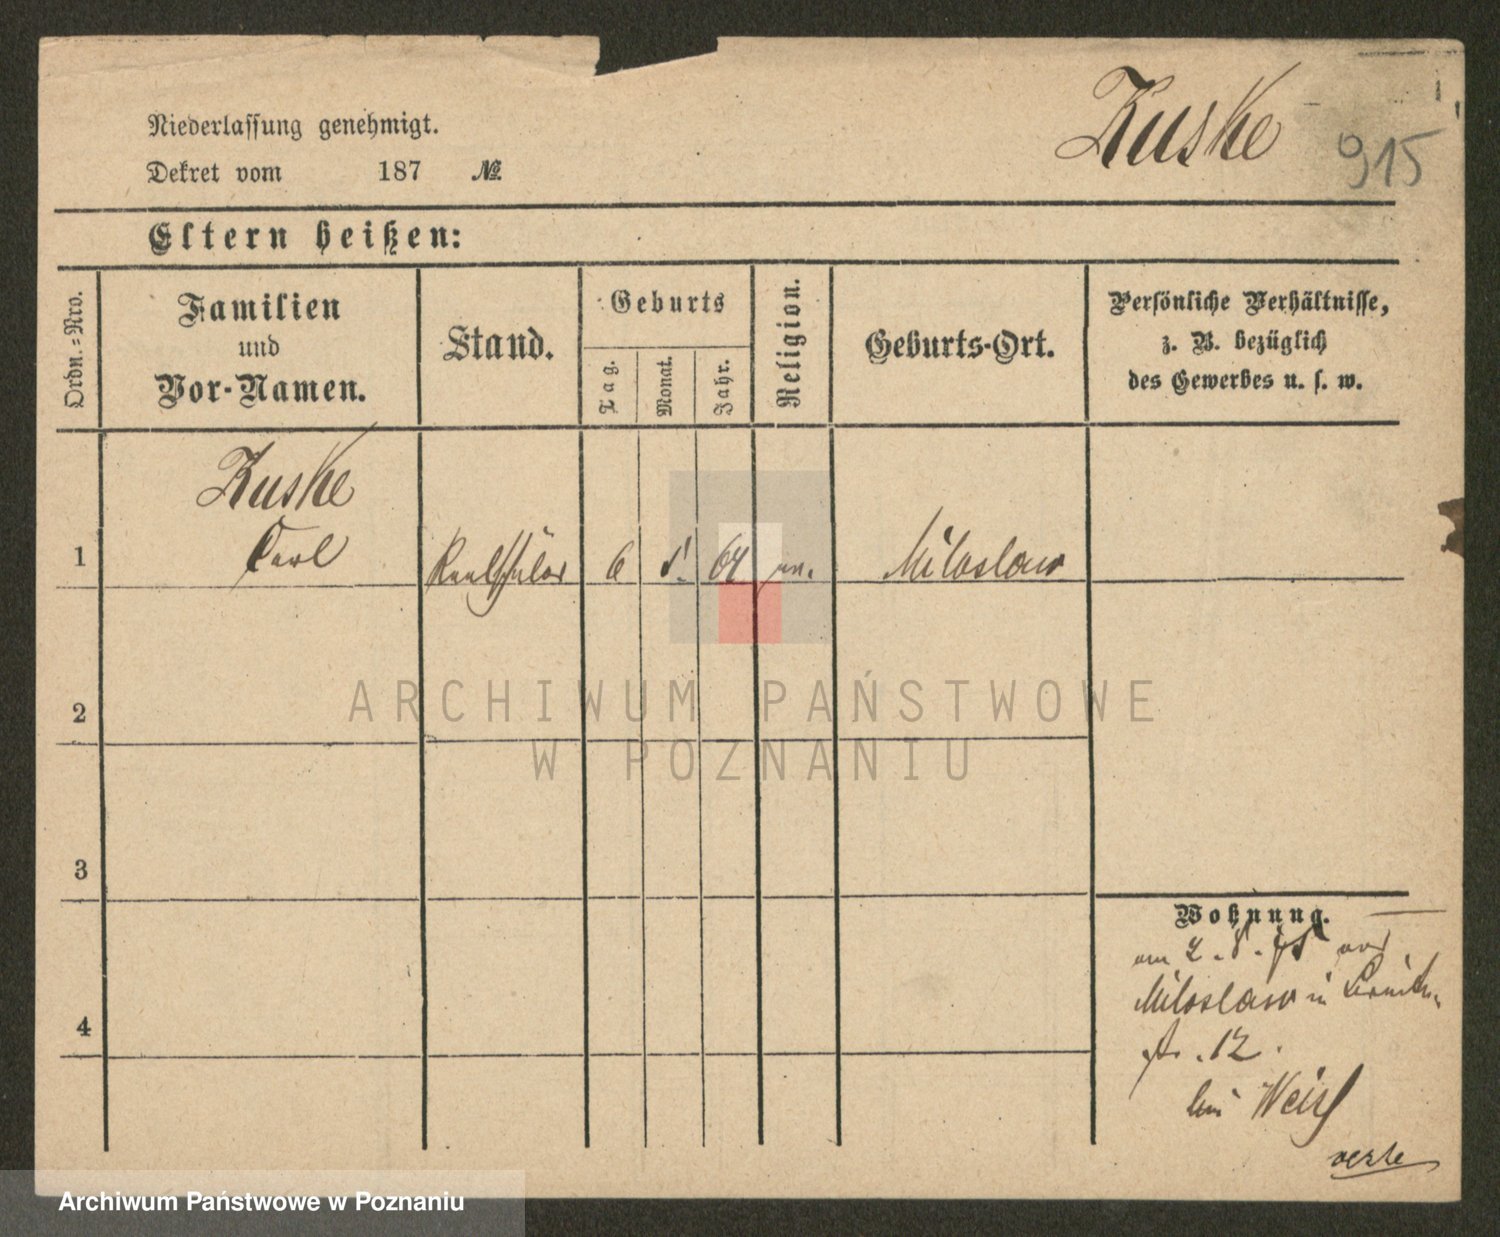 Niederlassung genehmigt.
Dekret vom 187 №
Kuske
915
Eltern heißen:
Ordn.-Nro.
Familien
und
Vor-Namen.
Stand.
Geburts
Tag.
Monat.
Jahr.
Religion.
Geburts-Ort.
Persönliche Verhältnisse,
z. B. bezüglich
des Gewerbes u. s. w.
Kuske
1 Carl Realschüler 6 64 Miloslaw
2
3
4
ARCHIWUM PAŃSTWOWE
W POZNANIU
Wohnung.
am 2.8.
Miloslaw in
12.
bei Weiss
verte
Archiwum Państwowe w Poznaniu